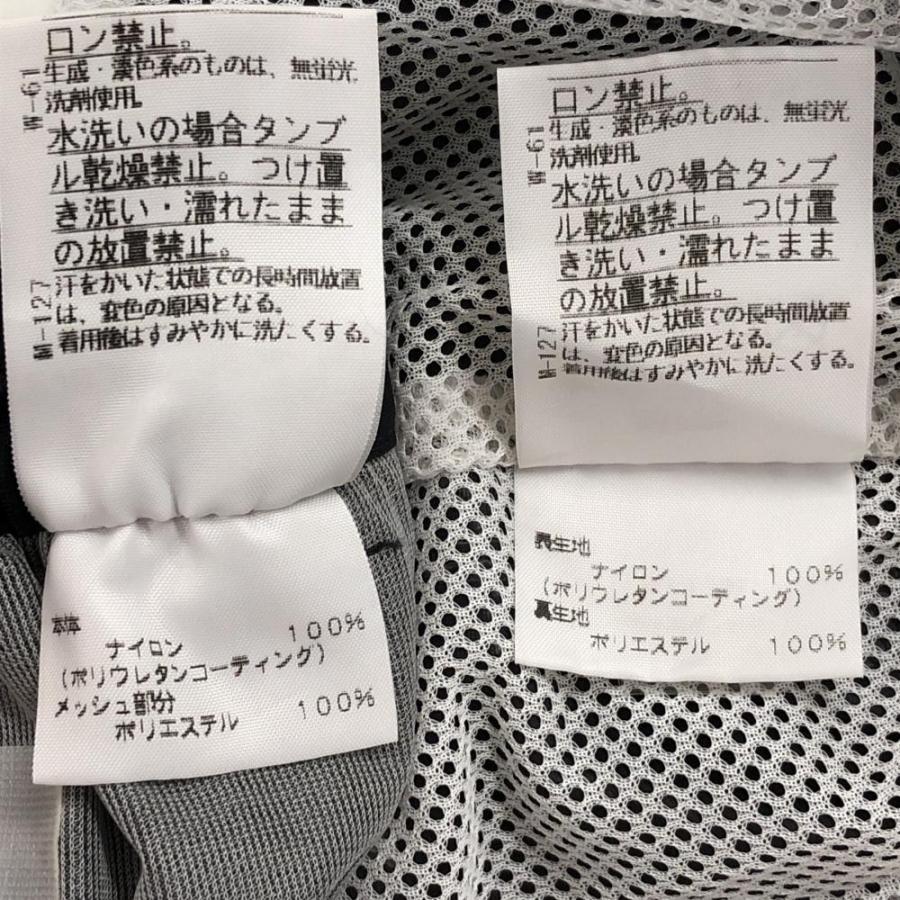 ロン禁止。
生成・淡色系のものは、無蛍光
洗剤使用。
W-61
水洗いの場合タンブ
ル乾燥禁止。つけ置
き洗い・濡れたまま
の放置禁止。
W-127
汗をかいた状態での長時間放置
は、変色の原因となる。
着用後はすみやかに洗たくする。
本体
ナイロン 100%
(ポリウレタンコーティング)
メッシュ部分
ポリエステル 100%
ロン禁止。
生成・淡色系のものは、無蛍光
洗剤使用。
W-61
水洗いの場合タンブ
ル乾燥禁止。つけ置
き洗い・濡れたまま
の放置禁止。
W-127
汗をかいた状態での長時間放置
は、変色の原因となる。
着用後はすみやかに洗たくする。
表生地
ナイロン 100%
(ポリウレタンコーティング)
裏生地
ポリエステル 100%